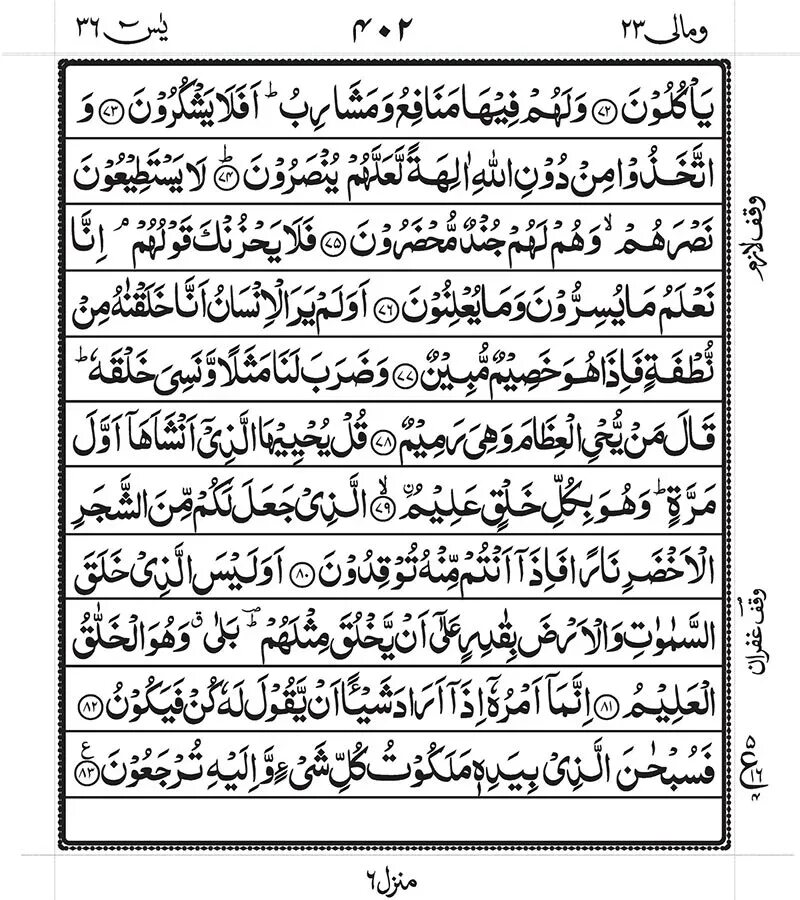 ومالی ۲۳ ۴۰۲ یٰس ۳۶
یَاْكُلُوْنَ ﴿۷۲﴾ وَلَهُمْ فِیْهَا مَنَافِعُ وَمَشَارِبُ ؕ اَفَلَا یَشْكُرُوْنَ ﴿۷۳﴾ وَ
اتَّخَذُوْا مِنْ دُوْنِ اللّٰهِ اٰلِهَةً لَّعَلَّهُمْ یُنْصَرُوْنَ ؕ﴿۷۴﴾ لَا یَسْتَطِیْعُوْنَ
نَصْرَهُمْ ۙ وَهُمْ لَهُمْ جُنْدٌ مُّحْضَرُوْنَ ﴿۷۵﴾ فَلَا یَحْزُنْكَ قَوْلُهُمْ ۘ اِنَّا
نَعْلَمُ مَا یُسِرُّوْنَ وَمَا یُعْلِنُوْنَ ﴿۷۶﴾ اَوَلَمْ یَرَ الْاِنْسَانُ اَنَّا خَلَقْنٰهُ مِنْ
نُّطْفَةٍ فَاِذَا هُوَ خَصِیْمٌ مُّبِیْنٌ ﴿۷۷﴾ وَضَرَبَ لَنَا مَثَلًا وَّنَسِیَ خَلْقَهٗ ؕ
قَالَ مَنْ یُّحْیِ الْعِظَامَ وَهِیَ رَمِیْمٌ ﴿۷۸﴾ قُلْ یُحْیِیْهَا الَّذِیْۤ اَنْشَاَهَاۤ اَوَّلَ
مَرَّةٍ ؕ وَهُوَ بِكُلِّ خَلْقٍ عَلِیْمُ ۙ﴿۷۹﴾ الَّذِیْ جَعَلَ لَكُمْ مِّنَ الشَّجَرِ
الْاَخْضَرِ نَارًا فَاِذَاۤ اَنْتُمْ مِّنْهُ تُوْقِدُوْنَ ﴿۸۰﴾ اَوَلَیْسَ الَّذِیْ خَلَقَ
السَّمٰوٰتِ وَالْاَرْضَ بِقٰدِرٍ عَلٰۤی اَنْ یَّخْلُقَ مِثْلَهُمْ ؕ بَلٰی ۗ وَهُوَ الْخَلّٰقُ
الْعَلِیْمُ ﴿۸۱﴾ اِنَّمَاۤ اَمْرُهٗۤ اِذَاۤ اَرَادَ شَیْـًٔا اَنْ یَّقُوْلَ لَهٗ كُنْ فَیَكُوْنُ ﴿۸۲﴾
فَسُبْحٰنَ الَّذِیْ بِیَدِهٖ مَلَكُوْتُ كُلِّ شَیْءٍ وَّاِلَیْهِ تُرْجَعُوْنَ ﴿۸۳﴾ ع
وقف لازم
وقف غفران
۵
ع
۱۶
منزل ۶